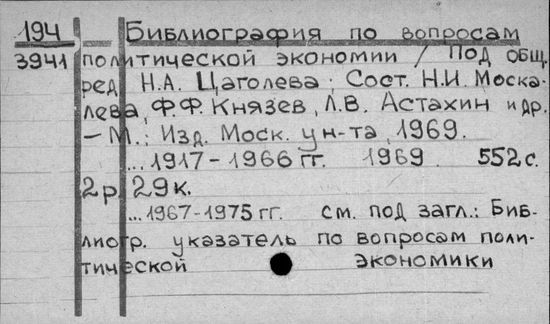 194 Библиография по вопросам
3941 политической экономии / Под общ.
ред. Н.А. Цаголева; Сост. Н.И. Моска-
лева, Ф.Ф. Князев, Л.В. Астахин и др.
– М.: Изд. Моск. ун-та, 1969.
...1917-1966 гг. 1969. 552 с.
2 р. 29 к.
...1967-1975 гг. см. под загл.: Биб-
лиогр. указатель по вопросам поли-
тической экономики